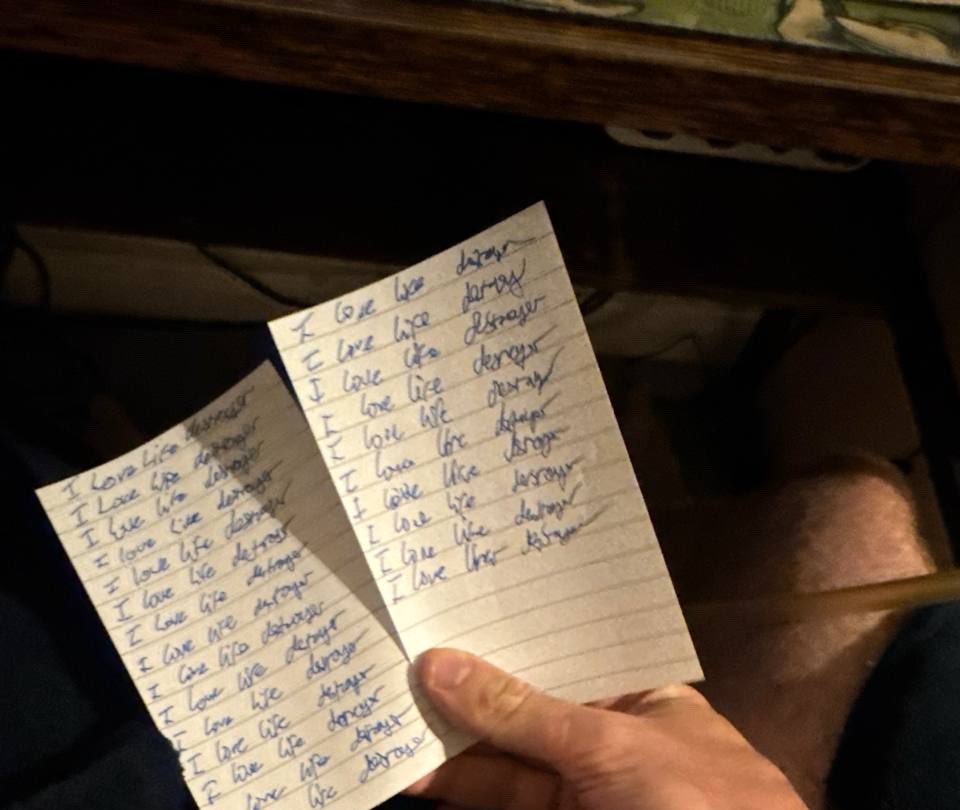 I Love Life destroyer
I Love life destroyer
I love life destroyer
I love life destroyer
I love life destroyer
I love life destroyer
I love life destroyer
I love life destroyer
I love life destroyer
I love life destroyer
I love life destroyer
I love life destroyer
I love life destroyer
love life destroyer
life destroyer
I love life destroyer
I love life destroy
I love life destroyer
I love life destroyer
I love life destroy
I love life destroyer
I love life destroyer
I love life destroyer
I love life destroyer
I love life destroyer